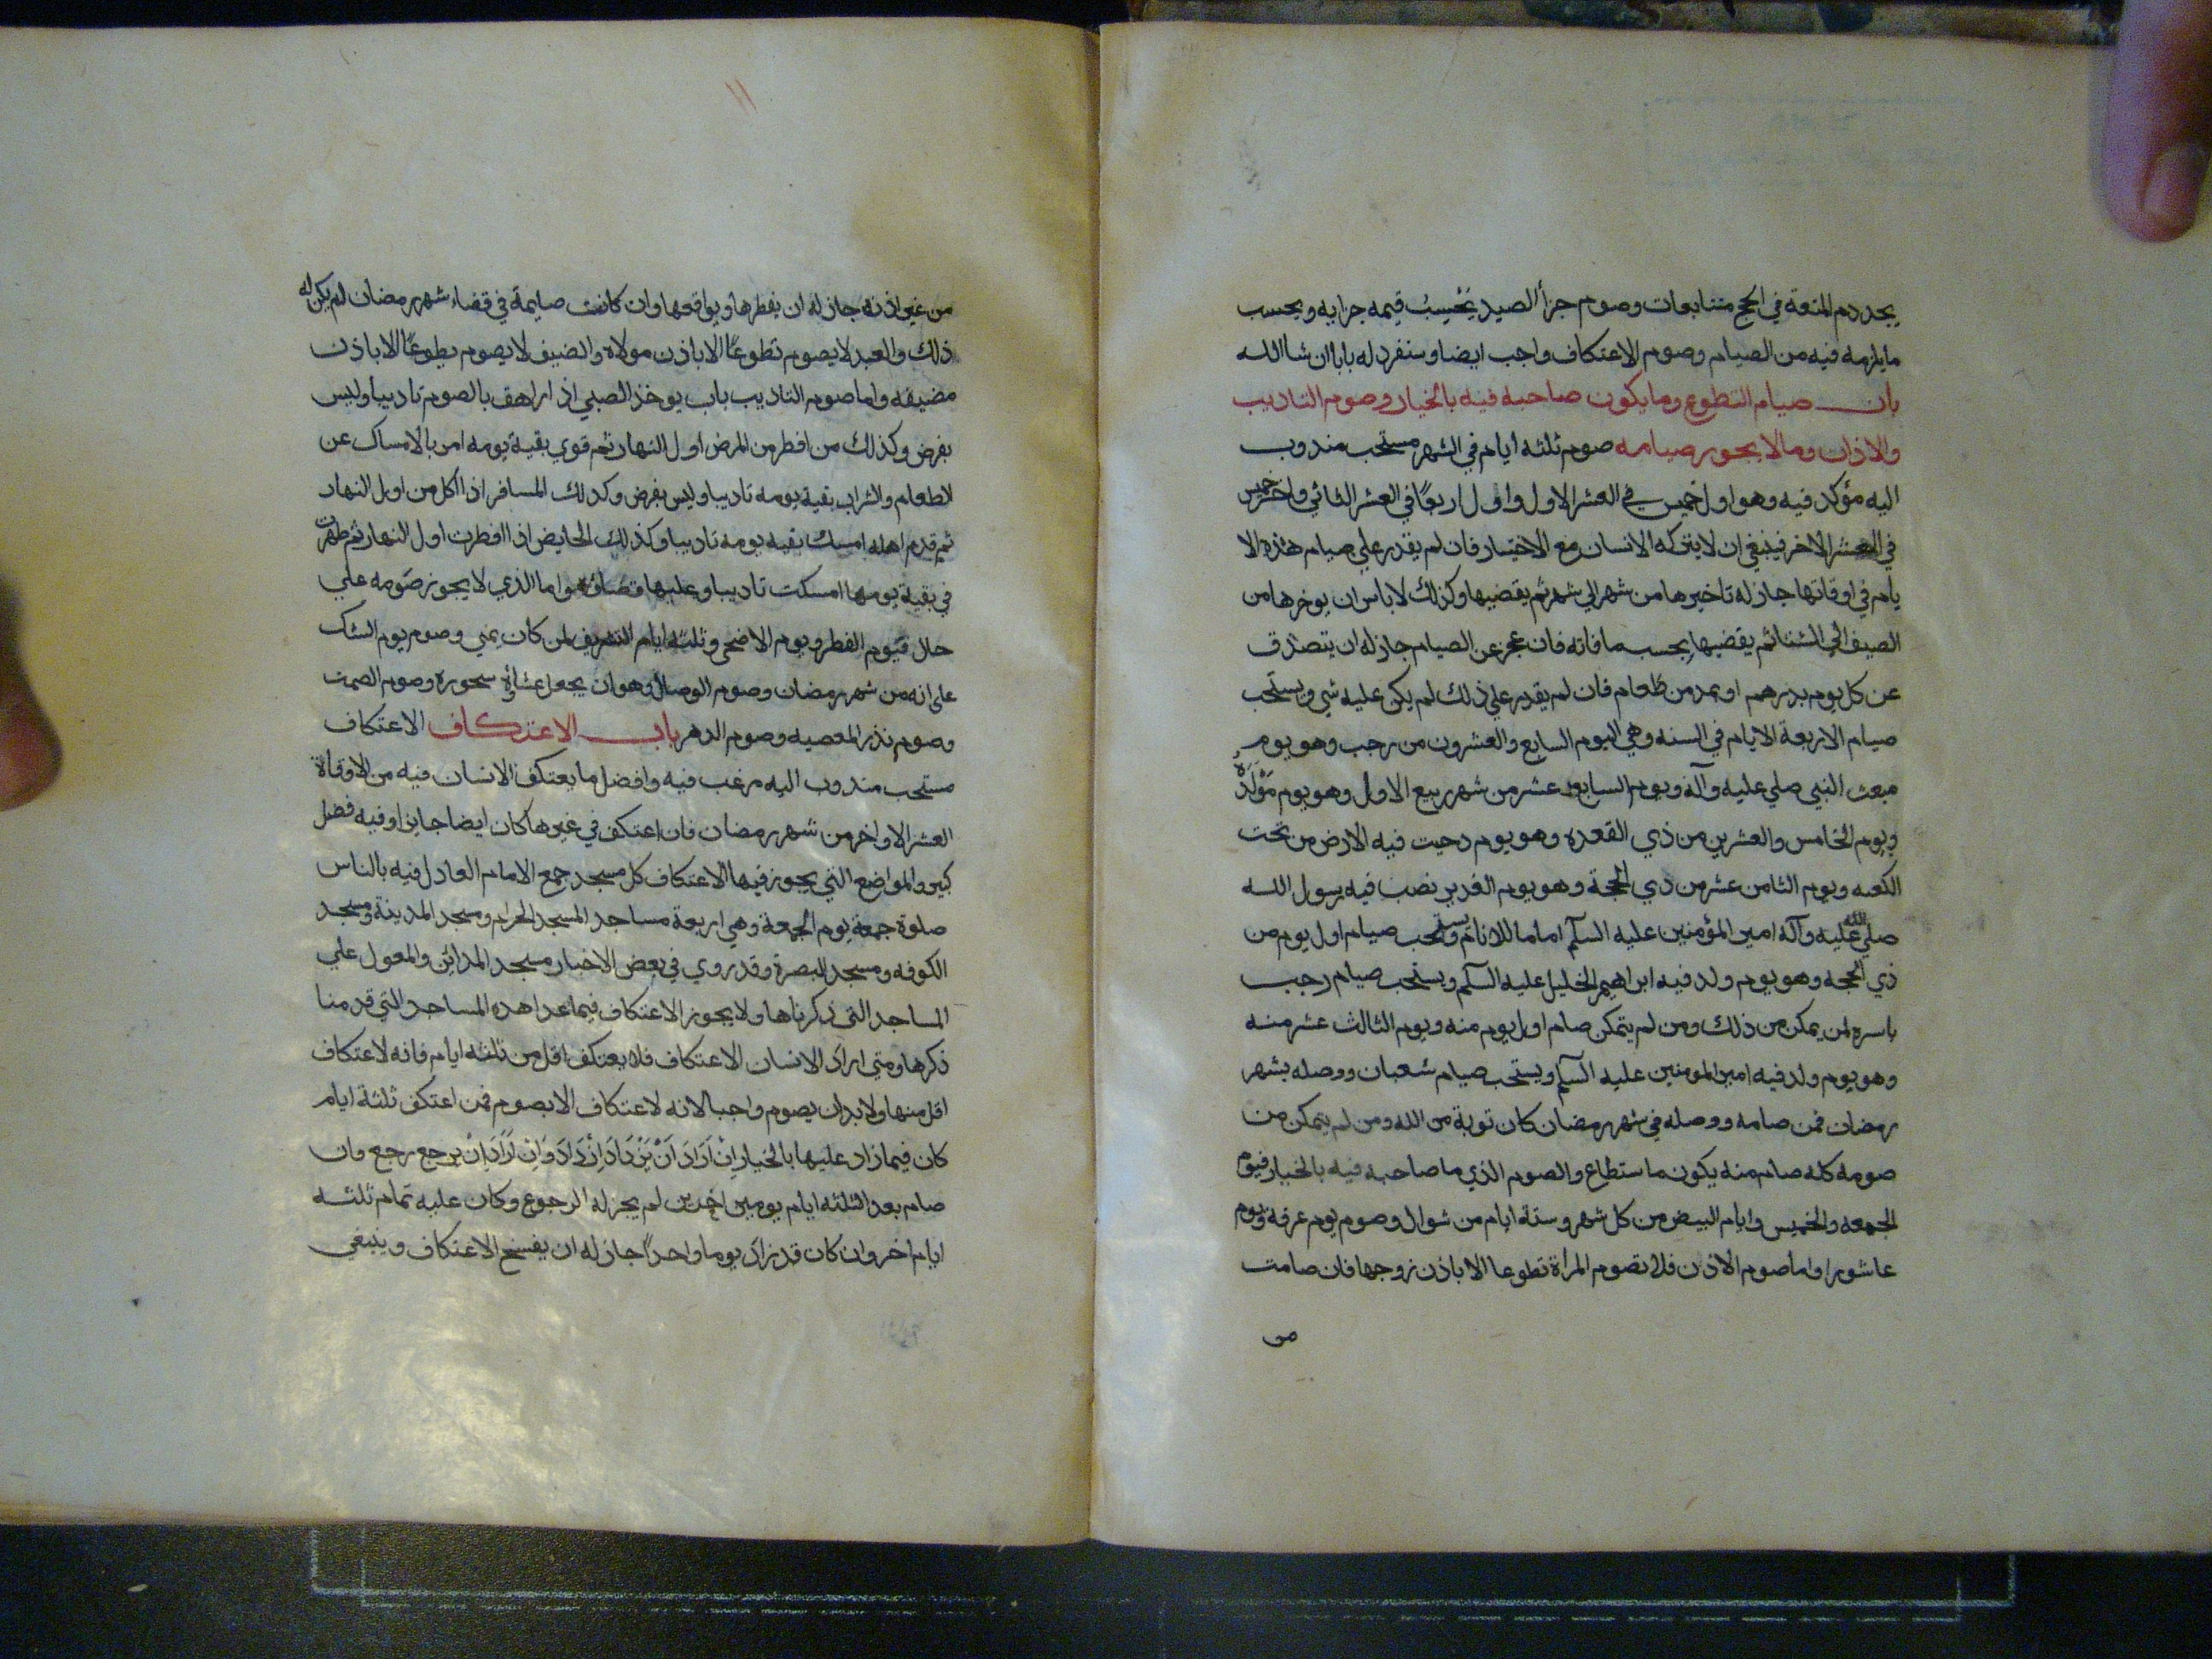 يجد دم المتعة في الحج متتابعات وصوم جزأ الصيد بحسب قيمه جزايه وبحسب
ما يلزمه فيه من الصيام وصوم الاعتكاف واجب ايضا وسنفرد له بابا ان شا الله
باب صيام التطوع وما يكون صاحبه فيه بالخيار وصوم التاديب
والاذان وما لا يجوز صيامه صوم ثلثه ايام في الشهر مستحب مندوب
اليه مؤكد فيه وهو اول خميس في العشر الاول واول اربعا في العشر الثاني واخر خميس
في العشر الاخر فينبغي ان لا يتركه الانسان مع الاختيار فان لم يقدر علي صيام هذه الا
يام في اوقاتها جاز له تاخيرها من شهر الي شهر ثم يقضيها وكذلك لا باس ان يوخرها من
الصيف الي الشتا ثم يقضيها بحسب ما فاته فان عجز عن الصيام جاز له ان يتصدق
عن كل يوم بدرهم او بمد من طعام فان لم يقدر علي ذلك لم يكن عليه شي ويستحب
صيام الاربعة الايام في السنه وهي اليوم السابع والعشرون من رجب وهو يوم
مبعث النبي صلي عليه وآله ويوم السابع عشر من شهر ربيع الاول وهو يوم مَوْلَدُه
ويوم الخامس والعشرين من ذي القعده وهو يوم دحيت فيه الارض من تحت
الكعبه ويوم الثامن عشر من ذي الحجة وهو يوم الغدير نصب فيه رسول الله
صلي الله عليه وآله امير المؤمنين عليه السلم اماما للانام ويستحب صيام اول يوم من
ذي الحجه وهو يوم ولد فيه ابراهيم الخليل عليه السلم ويستحب صيام رجب
باسره لمن يمكن من ذلك ومن لم يتمكن صام اول يوم منه ويوم الثالث عشر منه
وهو يوم ولد فيه امير المومنين عليه السلم ويستحب صيام شعبان ووصله بشهر
رمضان فمن صامه ووصله في شهر رمضان كان توبة من الله ومن لم يتمكن من
صومه كله صام منه يكون ما ستطاع والصوم الذي ما صاحبه فيه بالخيار فيوم
الجمعه والخميس وايام البيض من كل شهر وستة ايام من شوال وصوم يوم عرفة ويوم
عاشورا واما صوم الاذن فلا تصوم المراة تطوعا الا باذن زوجها فان صامت
من
١١
من غير اذنه جاز له ان يفطرها ويواقعها وان كانت صايمة في قضاء شهر رمضان لم يكن له
ذلك والعبد لا يصوم تطوعًا الا باذن مولاه والضيف لا يصوم بطوعًا الا باذن
مضيفه واما صوم التاديب باب يوخذ الصبي اذا راهق بالصوم تاديبا وليس
بفرض وكذلك من افطر من المرض اول النهار ثم قوي بقية يومه امر بالامساك عن
لاطعام والشراب بقية يومه تاديبا وليس بفرض وكدلك المسافر اذا اكل من اول النهار
ثم قدم اهله امسك بقيه يومه تاديبا وكذلك الحايض اذا افطرت اول النهار ثم طهرت
في بقية يومها امسكت تاديبا وعليها قضاؤه واما الذي لا يجوز صومه علي
حال فيوم الفطر ويوم الاضحى وثلثه ايام التشريف لمن كان بمني وصوم يوم الشك
على انه من شهر رمضان وصوم الوصال وهو ان يجعل عشاؤه سحوره وصوم الصمت
وصوم نذر المعصيه وصوم الدهر باب الاعتكاف الاعتكاف
مستحب مندوب اليه مرغب فيه وافضل ما يعتكف الانسان فيه من الاوقاة
العشر الاواخر من شهر رمضان فان اعتكف في غيرها كان ايضا جايزا وفيه فضل
كبير والمواضع التي يجوز فيها الاعتكاف كل مسجد جمع الامام العادل فيه بالناس
صلوة جمعة يوم الجمعة وهي اربعة مساجد المسجد الحرام ومسجد المدينة ومسجد
الكوفه ومسجد البصرة وقد روي في بعض الاخبار مسجد المدائن والمعول علي
المساجد التي ذكرناها ولا يجوز الاعتكاف فيما عدا هده المساجد التي قدمنا
ذكرها ومتي اراد الانسان الاعتكاف فلا يعتكف اقل من ثلثه ايام فانه لا عتكاف
اقل منها ولا بد ان يصوم واجبا لانه لا عتكاف الا بصوم فمن اعتكف ثلثة ايام
كان فيما زاد عليها بالخيار اِنْ اَرَادَ اَنْ يَزْدَادَ اِزْدَادَ وَاِنْ اَرَادَ اِنْ يرجع رجع وان
صام بعد الثلثه ايام يومين اخرين لم يجز له الرجوع وكان عليه تمام ثلثه
ايام اخر وان كان قد زاد يوما واحدًا جاز له ان يفسخ الاعتكاف وينبغي